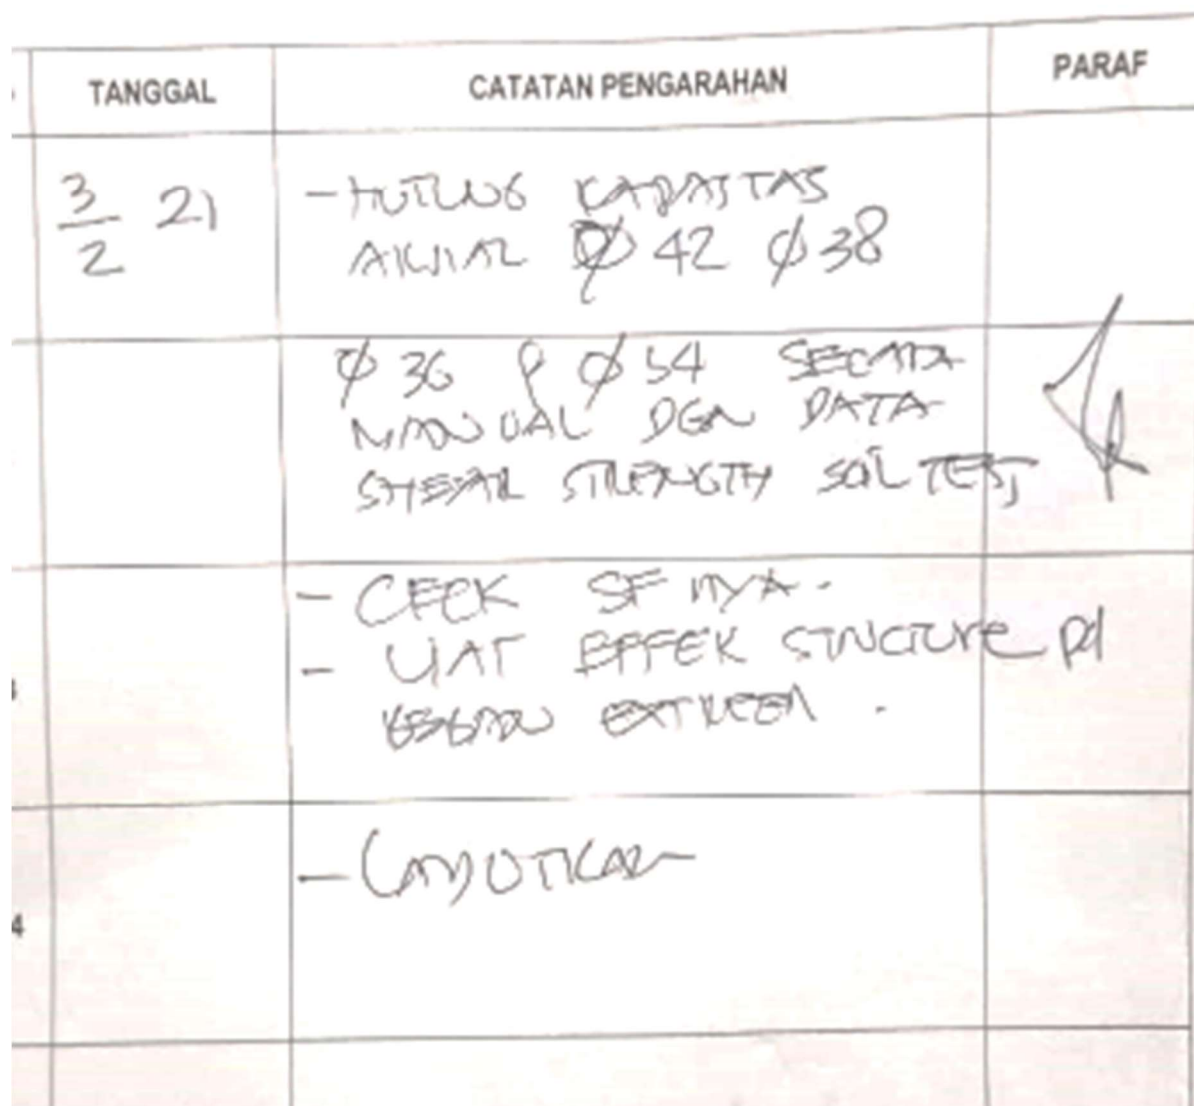 TANGGAL CATATAN PENGARAHAN PARAF
3/2 21 - HITUNG KAPASITAS
AXIAL Ø 42 Ø 38
Ø 36 Ø 54 SECARA
MANUAL DGN DATA
SHEAR STRENGTH SOIL TEST
- CECK SF NYA.
- LIAT EFFEK STRUCTURE pd
BEBAN EXTREEM.
- LANJUTKAN
4